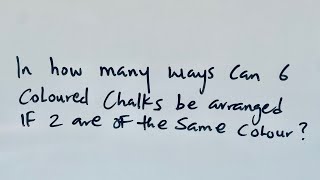 In how many ways can 6
Coloured Chalks be arranged
IF 2 are of the Same Colour?